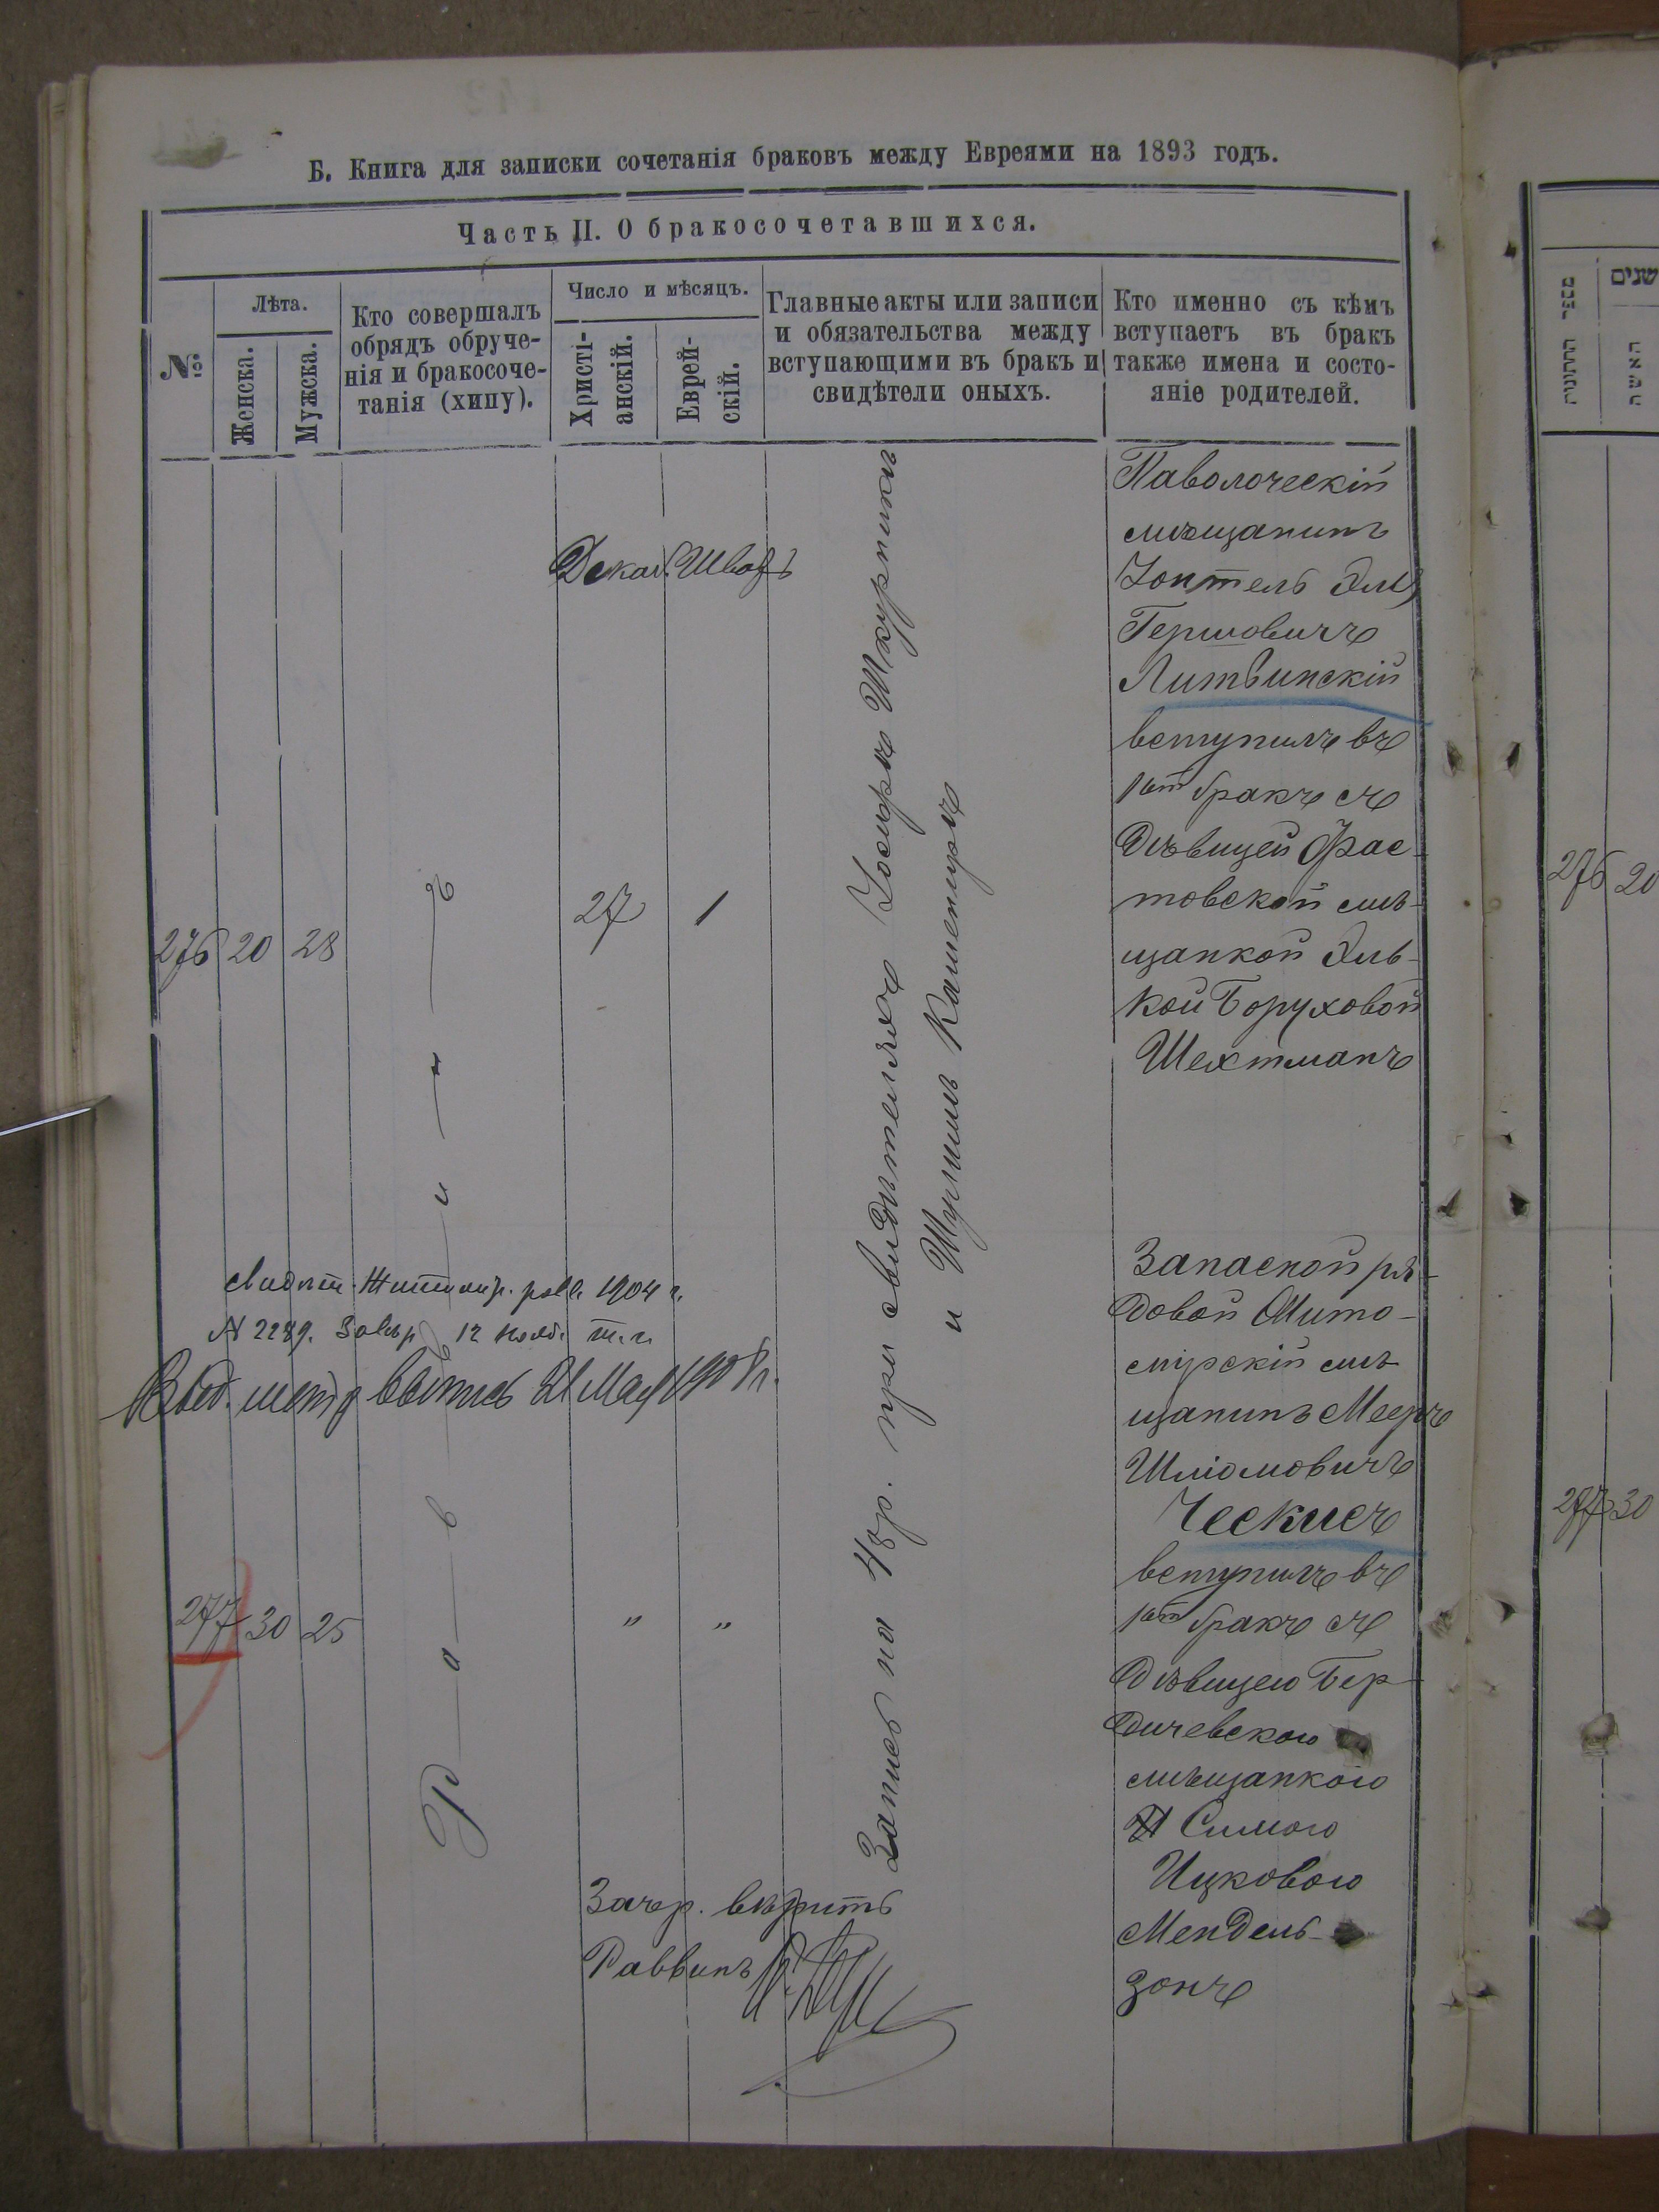 Б. Книга для записки сочетанія браковъ между Евреями на 1893 годъ.
Часть II. О бракосочетавшихся.
№
Лѣта.
Женска.
Мужска.
Кто совершалъ
обрядъ обруче-
нія и бракосоче-
танія (хипу).
Число и мѣсяцъ.
Христі-
анскій.
Еврей-
скій.
Главные акты или записи
и обязательства между
вступающими въ бракъ и
свидѣтели оныхъ.
Кто именно съ кѣмъ
вступаетъ въ бракъ
также имена и состо-
яніе родителей.
Декаб. Шватъ
276 20 28
27 1
Раввинъ
Запись на 48р. при свидѣтеляхъ Іосифѣ Шкурникѣ
и Шулимъ
Паволоческій
мѣщанинъ
Эль
Гершовичъ
Литвинскій
вступилъ въ
1ый бракъ съ
дѣвицей Фас-
товской мѣ-
щанкой Эль-
кой Боруховой
Шехтманъ
Свидѣт. Житомир. равв. 1904 г.
N 2289. 12 Нояб. т.г.
Выд. метр выпись 21 Мая 1908 г.
277 30 25
" "
Запасной ря-
довой Жито-
мірскій мѣ-
щанинъ Мееръ
Шліомовичъ
Ческисъ
вступилъ въ
1ый бракъ съ
дѣвицею Бер-
дичевскою
мѣщанкою
Симою
Ицковою
Мендель-
зонъ
Зачер. вѣрить
Раввинъ
מספר החתונות
שנים
האשה
276 20
277 30